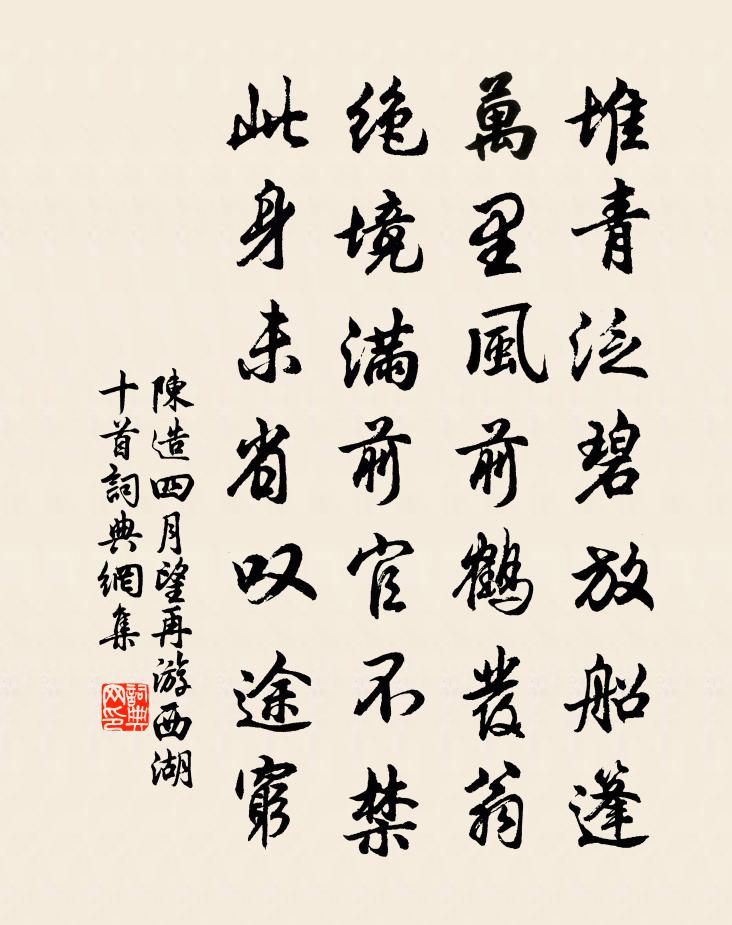 堆青泛碧放船篷
萬里風前鶴髮翁
绝境滿前官不禁
此身未省叹途窮
陳造四月望再游西湖
十首詞典網集
詞典网印